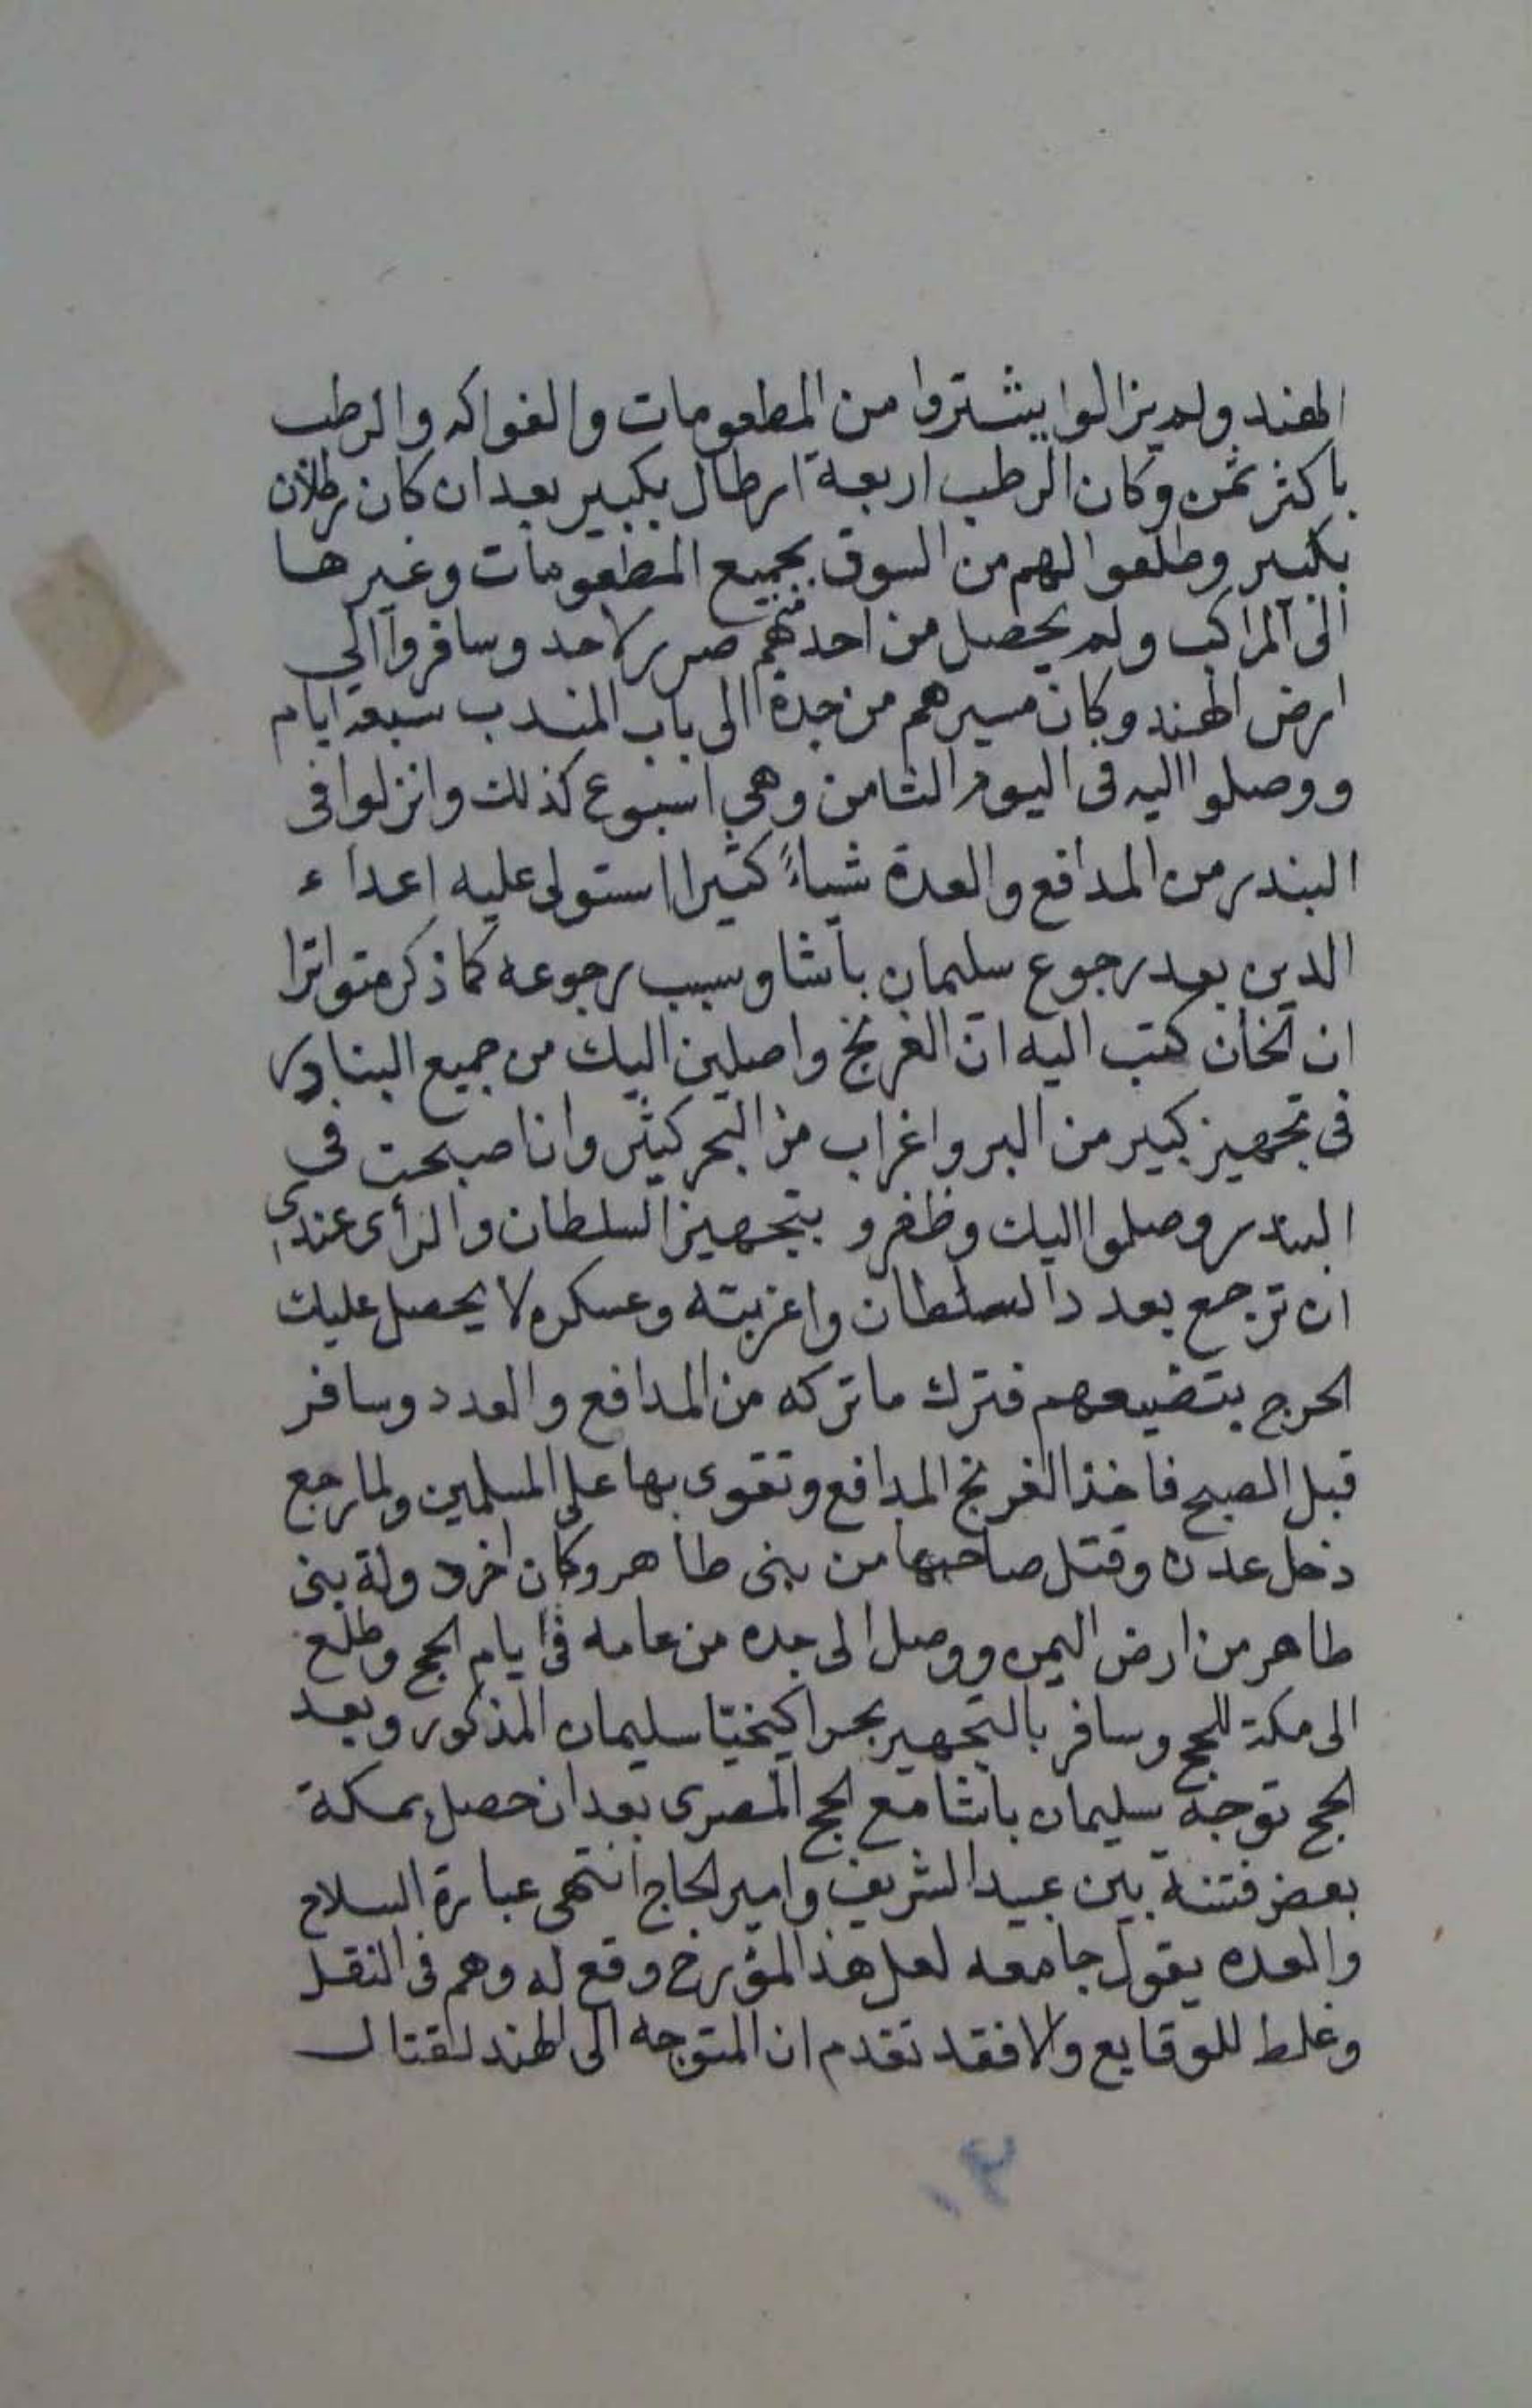 الهند ولم يزالوا يشتروا من المطعومات والفواكه والرطب
باكثر ثمن وكان الرطب اربعة ارطال بكبير بعد ان كان رطلان
بكبير وطلعوا لهم من السوق بجميع المطعومات وغيرها
الى المراكب ولم يحصل من احد منهم ضرر لاحد وسافروا الى
ارض الهند وكان مسيرهم من جدة الى باب المندب سبعة ايام
ووصلوا اليه فى اليوم الثامن وهي اسبوع كذلك وانزلوا فى
البندر من المدافع والعدة شياءً كثيرا استولى عليه اعداء
الدين بعد رجوع سليمان باشا وسبب رجوعه كما ذكر متواترا
ان الخان كتب اليه ان الفرنج واصلين اليك من جميع البنادر
فى تجهيز كبير من البر واغراب من البحر كثير وانا صبحت في
البندر وصلوا اليك وظفرو بتجهيز السلطان والرأى عندي
ان ترجع بعدد السلطان واغربته وعسكره لا يحصل عليك
الحرج بتضيعهم فترك ما تركه من المدافع والعدد وسافر
قبل الصبح فاخذ الفرنج المدافع وتقوى بها على المسلمين ولما رجع
دخل عدن وقتل صاحبها من بنى طاهر وكان اخر دولة بنى
طاهر من ارض اليمن ووصل الى جده من عامه فى ايام الحج وطلع
الى مكة للحج وسافر بالتجهيز بحرا كيخيتا سليمان المذكور وبعد
الحج توجه سليمان باشا مع الحج المصرى بعد ان حصل بمكة
بعض فتنة بين عبيد الشريف وامير الحاج انتهى عبارة السلاح
والعده يقول جامعه لعل هذا المؤرخ وقع له وهم فى النقل
وغلط للوقايع والا فقد تقدم ان المتوجه الى الهند لقتال